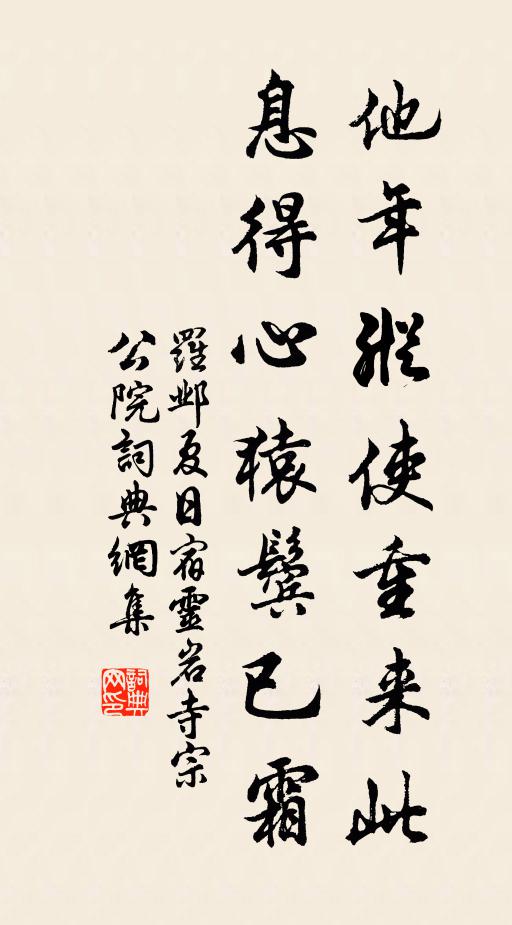 他年縱使重来此
息得心猿鬓已霜
羅邺夏日宿靈岩寺宗
公院詞典網集
詞典网印